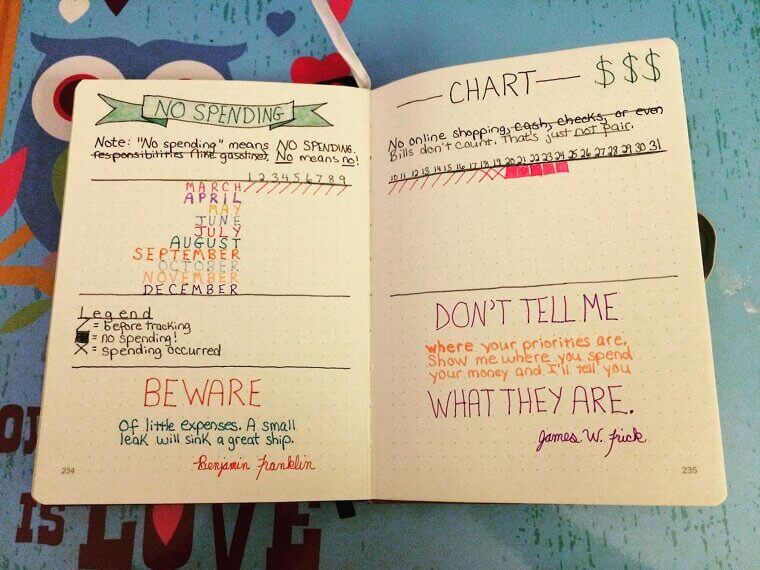 NO SPENDING
Note: "No spending" means NO SPENDING.
responsibilities (like gasoline). No means no!
1 2 3 4 5 6 7 8 9
MARCH
APRIL
MAY
JUNE
JULY
AUGUST
SEPTEMBER
OCTOBER
NOVEMBER
DECEMBER
Legend
/ = before tracking
■ = no spending!
X = spending occurred
BEWARE
Of little expenses. A small
leak will sink a great ship.
Benjamin Franklin
234
CHART $$$
No online shopping, cash, checks, or even
Bills don't count. That's just not fair.
10 11 12 13 14 15 16 17 18 19 20 21 22 23 24 25 26 27 28 29 30 31
DON'T TELL ME
where your priorities are.
Show me where you spend
your money and I'll tell you
WHAT THEY ARE.
James W. Frick
235
IS LOVE